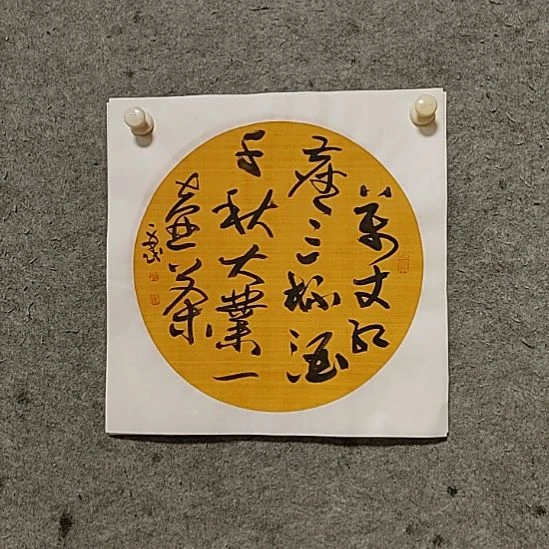 萬丈红
塵三杯酒
千秋大業一
壶茶